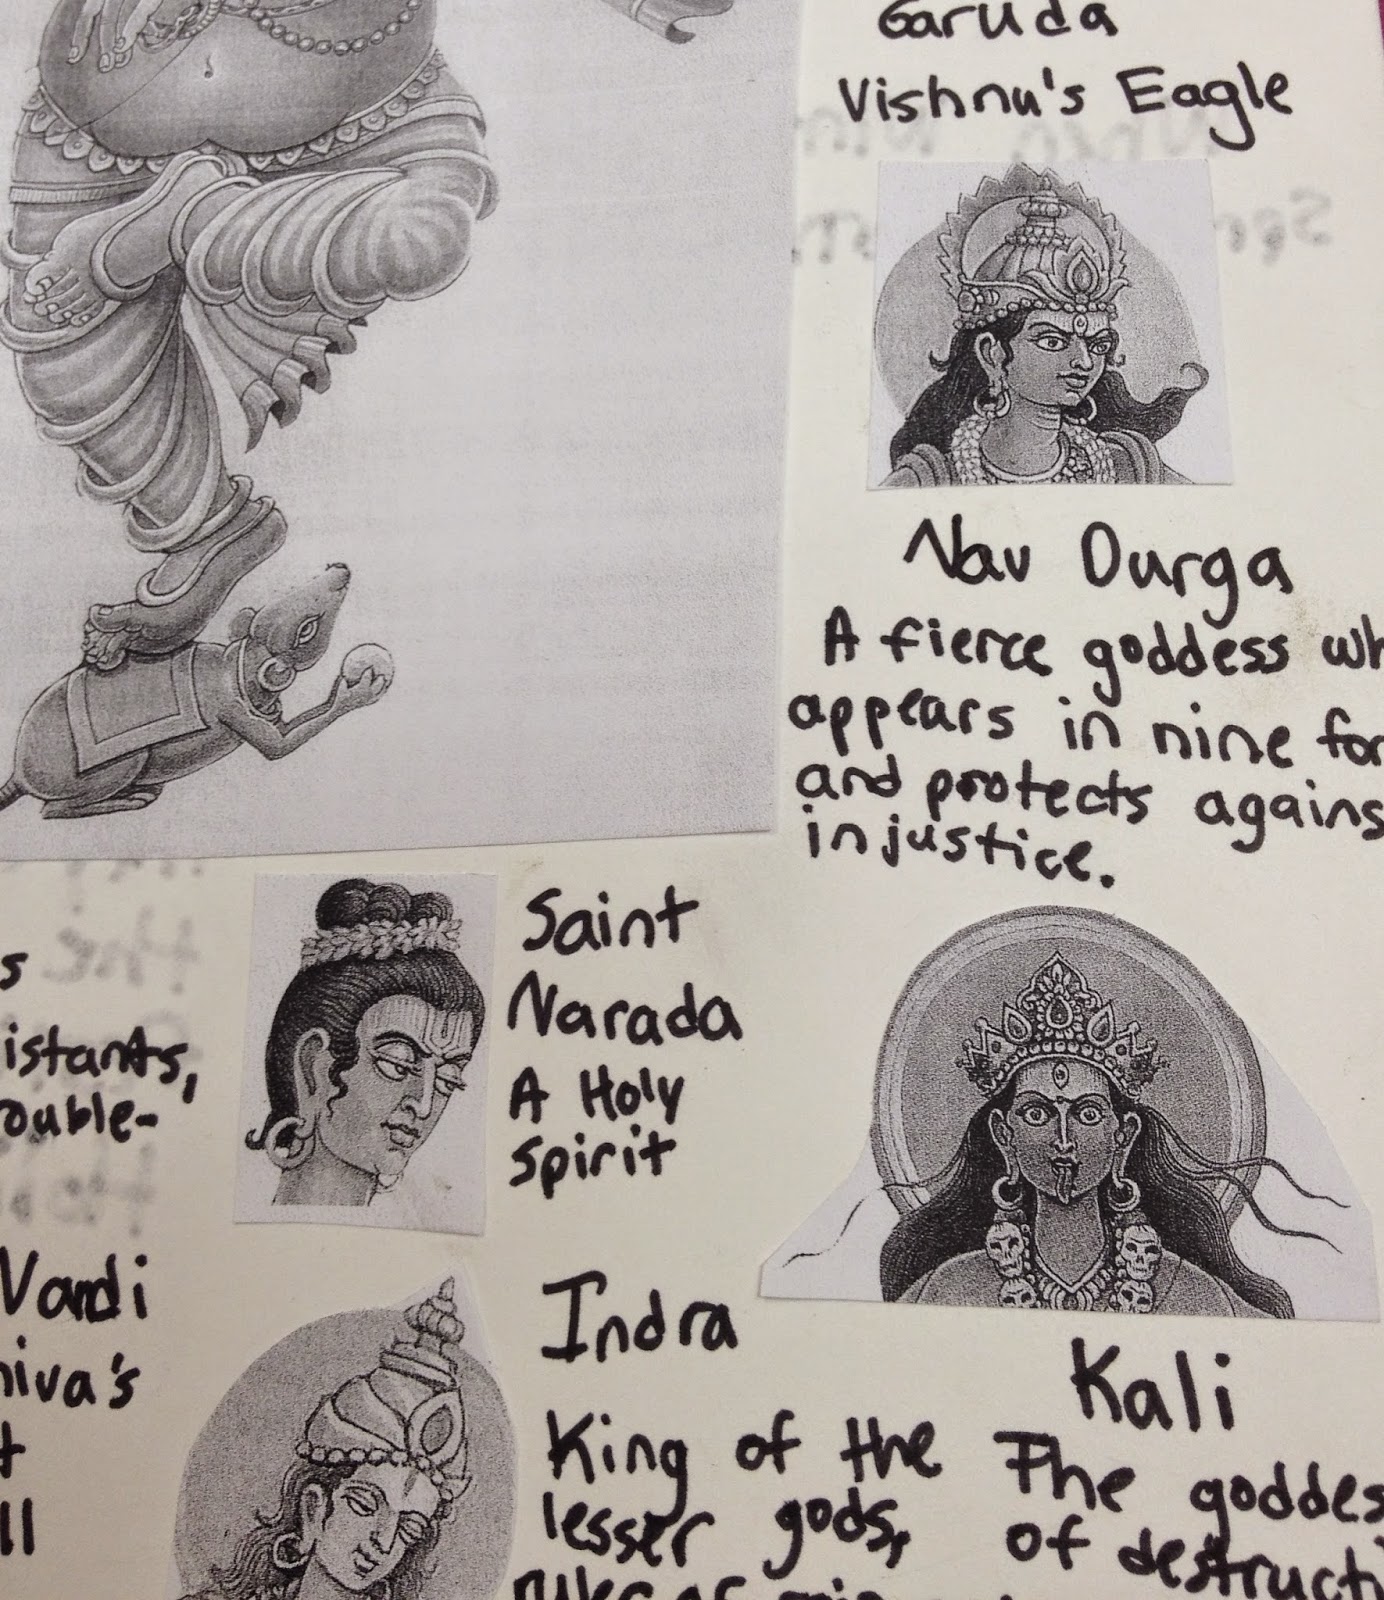 Garuda
Vishnu's Eagle
Nav Durga
A fierce goddess wh
appears in nine for
and protects agains
injustice.
Saint
Narada
A Holy
Spirit
s
istants,
rouble-
Vardi
hiva's
t
ll
Indra
King of the
lesser gods,
Kali
The goddes
of destructi